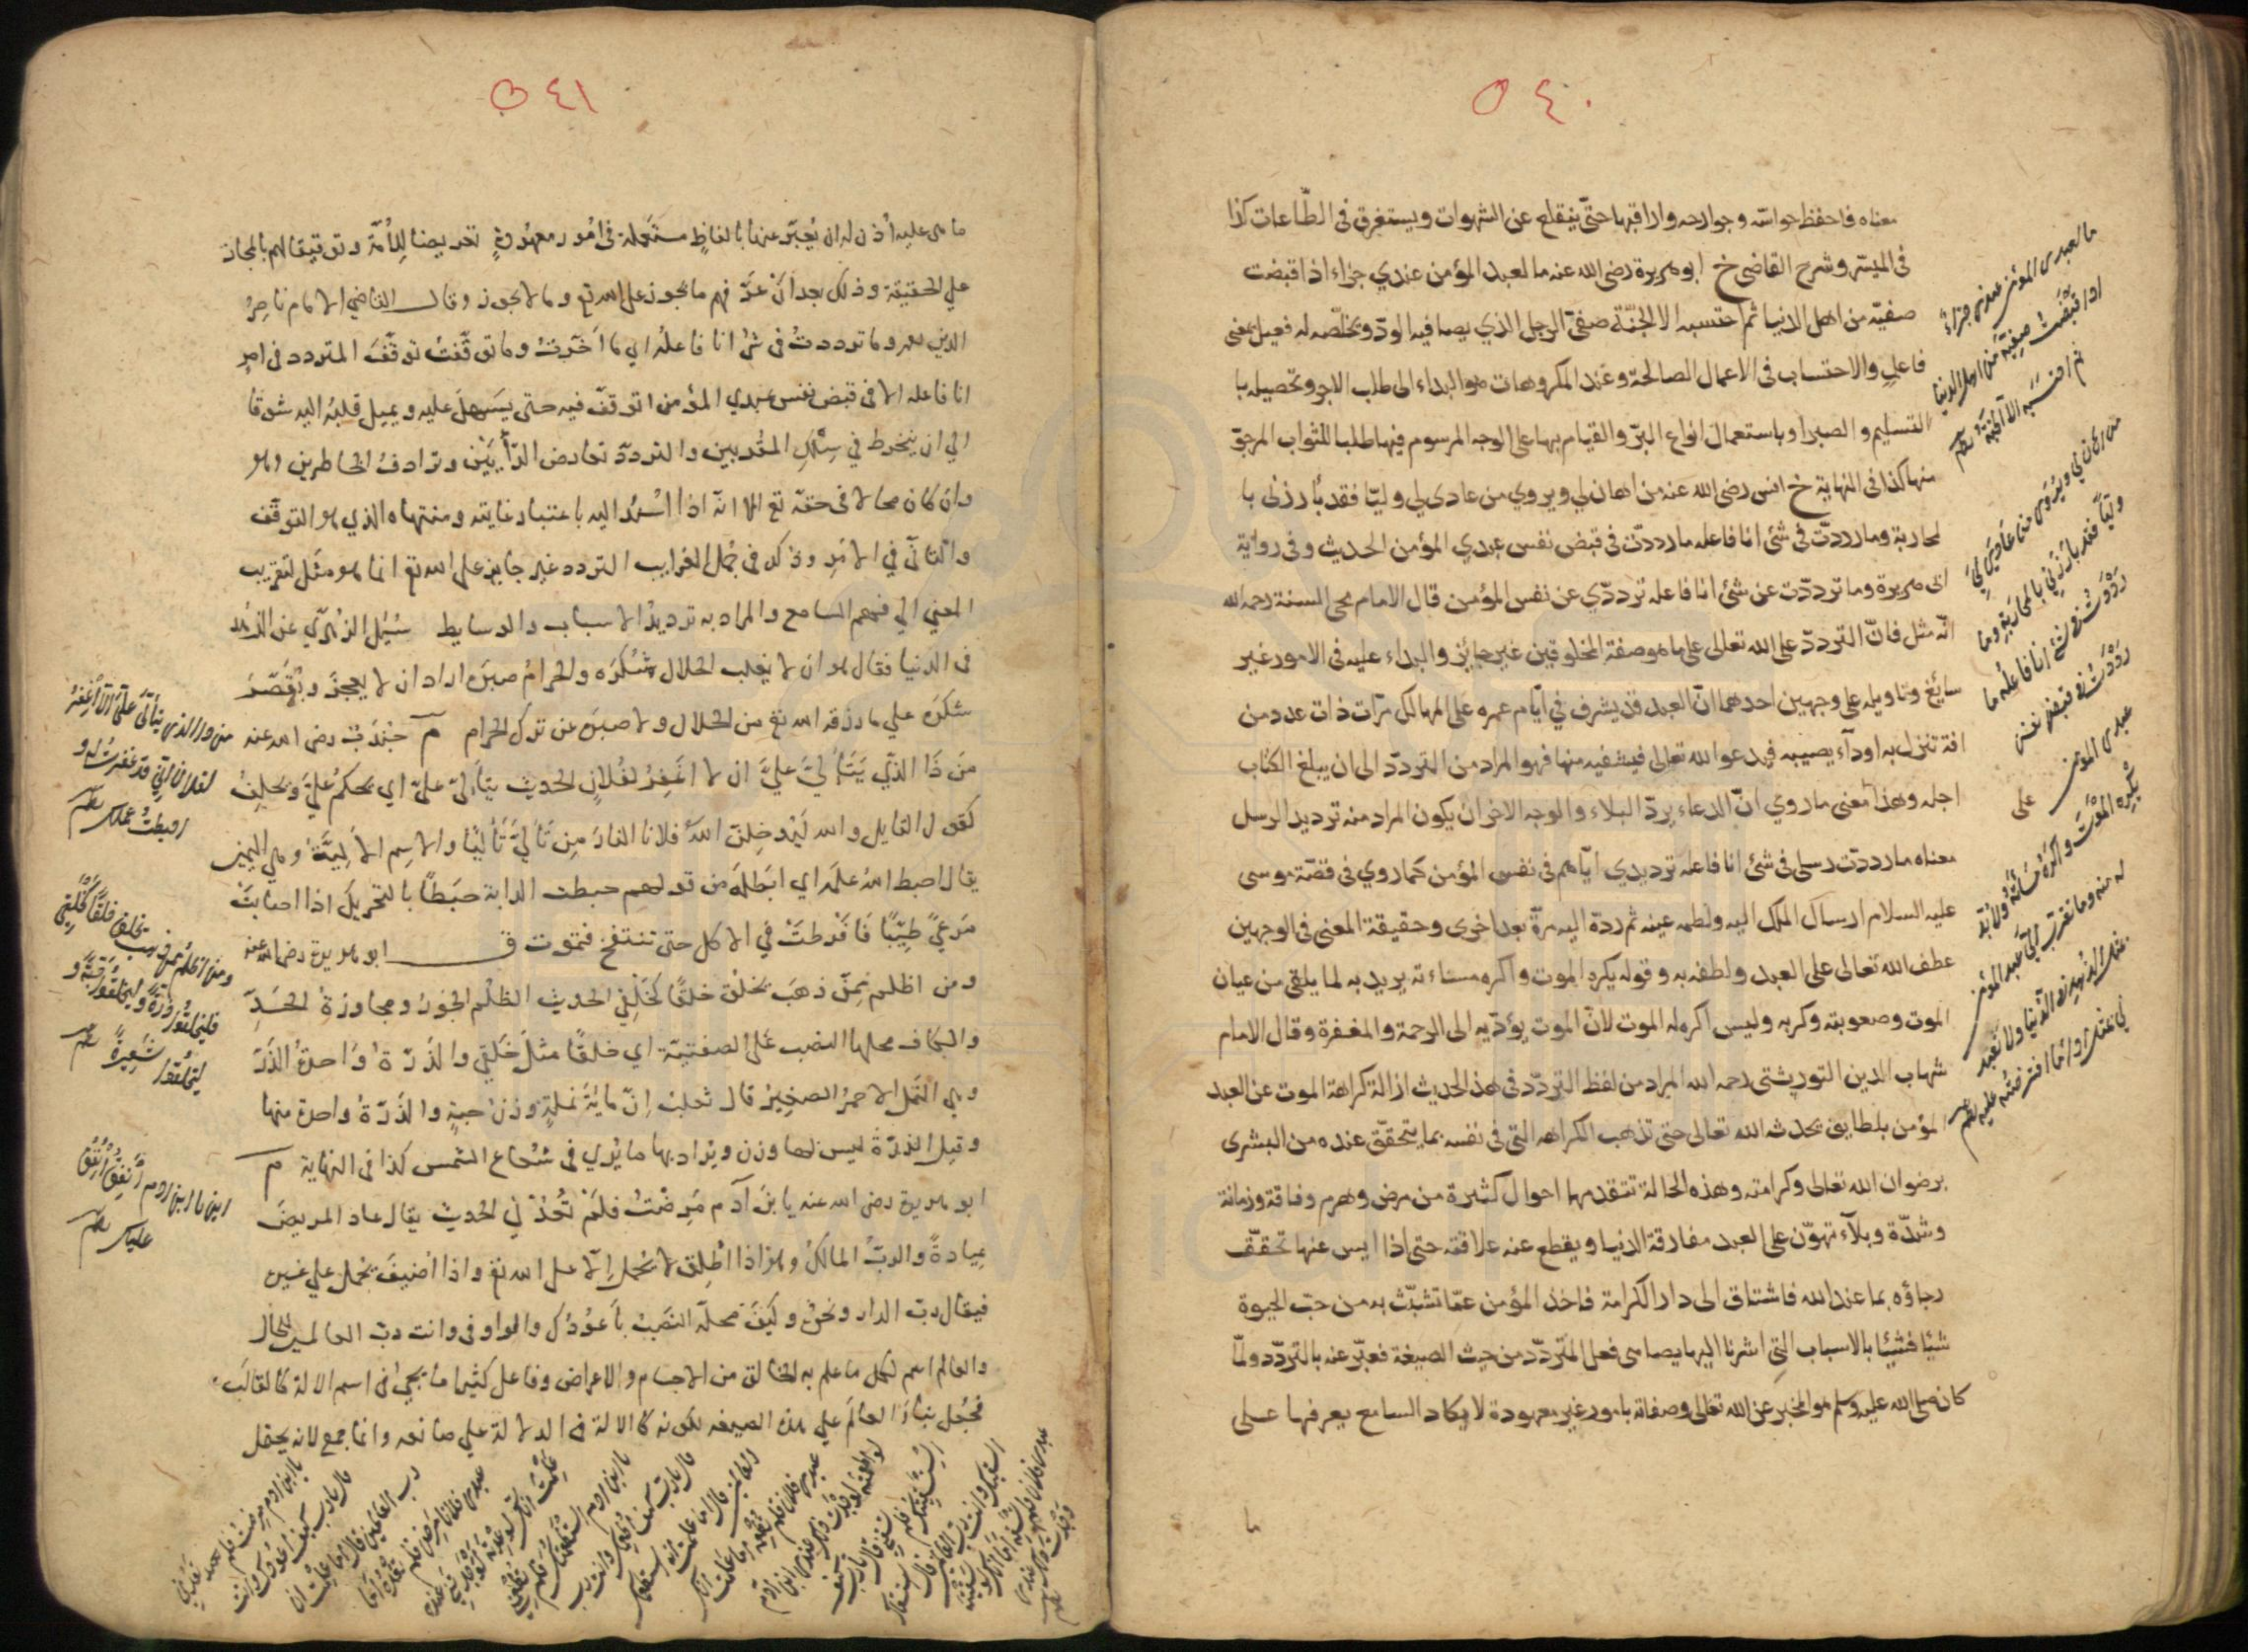 ٥٤٠
معناه فاحفظ حواسّه وجوارحه واراقبها حتّى ينقلع عن الشهوات ويستغرق فى الطّاعات كذا
فى الميسّر وشرح القاضى خ ابو هريرة رضى الله عنه ما لعبد المؤمن عندي جزاء اذا قبضت
صفيّه من اهل الدنيا ثم احتسبه الا الجنّة صفىّ الرجل الذي يصافيه الودّ ويخلّصه له فعيل بمعنى
فاعلٍ والاحتساب فى الاعمال الصالحة وعند المكروهات هو البداء الى طلب الاجر وتحصيله با
التسليم والصبر او باستعمال انواع البرّ والقيام بها على الوجه المرسوم فيها طلبا للثواب المرجوّ
منها كذا فى النهاية خ انس رضى الله عنه من اهان لي ويروي من عادى لي وليّا فقد بارزنى با
لمحاربة وما رددّت فى شئ انا فاعله ما رددّت فى قبض نفس عبدي المؤمن الحديث وفى رواية
ابى هريرة وما تردّدّت عن شئ انا فاعله تردّدي عن نفس المؤمن قال الامام محى السنة رحمه الله
انّه مثل فانّ التردّد على الله تعالى على ما هو صفة المخلوقين غير جائز والبداء عليه فى الامور غير
سايغ وتاويله على وجهين احدهما انّ العبد قد يشرف في ايّام عمره على المهالك مرّات ذات عدد من
افة تنزل به اوداء يصيبه فيدعو الله تعالى فيشفيه منها فهو المراد من التردّد الى ان يبلغ الكتاب
اجله وهذا معنى ما روي انّ الدعاء يردّ البلاء والوجه الاخر ان يكون المراد منه ترديد الرسل
معناه ما رددّت رسلى فى شئ انا فاعله ترديدي ايّاهم فى نفس المؤمن كما روي فى قصّة موسى
عليه السلام ارسال الملك اليه ولطمه عينه ثم ردّه اليه مرّة بعد اخرى وحقيقة المعنى فى الوجهين
عطف الله تعالى على العبد ولطفه به وقوله يكره الموت واكره مساءته يريد به لما يلقى من عيان
الموت وصعوبته وكربه وليس اكره له الموت لانّ الموت يؤدّيه الى الرحمة والمغفرة وقال الامام
شهاب الدين التوربشتى رحمه الله المراد من لفظ التردّد فى هذا الحديث ازالة كراهة الموت عن العبد
المؤمن بلطايف يحدثه الله تعالى حتى تذهب الكراهه التى فى نفسه بما يتحقّق عنده من البشرى
برضوان الله تعالى وكرامته وهذه الحالة تتقدمها احوال كثيرة من مرض وهرم وفاقة وزمانة
وشدّة وبلاء تهوّن على العبد مفارقة الدنيا ويقطع عنه علاقته حتى اذا ايس عنها تحقّق
رجاؤه بما عند الله فاشتاق الى دار الكرامة فاخذ المؤمن عمّا تشبّث به من حبّ الحيوة
شيئا فشيئا بالاسباب التى اشرنا اليها يضاهى فعل المتردّد من حيث الصيغة فعبّر عنه بالتردّد ولمّا
كان صلى الله عليه وسلم هو المخبر عن الله تعالى وصفاته بامور غير معهودة لا يكاد السامع يعرفها على
ما
ما لعبدى المؤمن عندى جزاء
اذا قبضت صفيه من اهل الدنيا
ثم احتسبه الا الجنة
من اهان لي ويروى من عادى لي
وليّا فقد بارزنى بالمحاربة وما
رددت فى شئ انا فاعله ما
رددت فى قبض نفس
عبدى المؤمن
يكره الموت واكره مساءته ولا بد
له منه وما تقرب الي عبدى المؤمن
بمثل الزهد فى الدنيا ولا تعبد
لي بمثل اداء ما افترضته عليه
٥٤١
ما هى عليه اُذن له ان يُعبّر عنها بالفاظٍ مستعملة فى امُور معهُودةٍ تعريضا للِاُمّة وتوقيفا لهم بالمجاز
على الحقيقة وذلك بعد ان عرّفهم ما يجوز على الله تع وما لا يجوز وقال القاضي الامام ناصرُ
الدين معه وما ترددتُ فى شئ انا فاعله اي ما اَخّرتُ وما توقّفتُ توقّفَ المتردد فى امرٍ
انا فاعله الا فى قبض نفس عبدي المؤمن اتوقّف فيه حتى يَسهلَ عليه ويميل قلبه اليه شوقًا
الي ان ينخرط في سِلكِ المقربين والتردد تعارض الرّأيَيْن وترادفُ الخاطرين وهو
وان كان محالا فى حقّه تع الا انّه اذا اُسْنِدُ اليه باعتبار غايته ومنتهاه الذي هو التوقّف
والتانّي في الامرِ وذكر في جُمل الغرايب التردد غير جايز على الله تع انما هو مثَل لتقريب
المعني الي فهم السامع والمراد به ترديدُ الاسباب والوسايط سُئِل الزهري عن الزُهد
فى الدنيا فقال هو ان لا يغلب الحلال شُكرَه والحرامُ صبرَه اراد ان لا يعجزَ ويُقصّرَ
شكرَه علي ما رزقه الله تع من الحلال ولا صبرَه عن ترك الحرام م جُندَبُ رضى الله عنه
مَن ذَا الذّي يَتَألّى عليَّ ان لا اغفِرُ لفُلانٍ الحديث يتألّى علىّ اي يحكمُ عليَّ ويحلِفُ
كقول القايل والله لَيُدخِلنّ اللهُ فلانا النارَ مِن تألّي تَأَلّيًا والاسِم الاَلِيَّةُ وهي اليمين
يقال احبط اللهُ عملَه اي ابَطلَه من قولهم حبطت الدابة حبَطًا بالتحريك اذا اصابَتْ
مَرعًي طيّبًا فاَفرطَتْ في الاكل حتى تنتفخ فتموت ق ابو هريرة رضى الله عنه
ومن اظلم ممّن ذهبَ يخلق خلقًا كخَلْقي الحديث الظلم الجَورُ ومجاوزةُ الحَدِّ
والكاف محلها النصب على الصفتيّة اي خلقًا مثلَ خَلقي والذَّرّةُ واحدةُ الذّرّ
وهى النّمل الاحمرُ الصغيرُ قال ثعلب اِنّ مايةَ نملةٍ وزنُ حبةٍ والذّرّةُ واحدة منها
وقيل الذرّةُ ليس لها وزن ويُراد بها ما يُري فى شعاع الشمس كذا فى النهاية م
ابو هريرة رضى الله عنه يا بنَ آدم مَرِضتُ فلَمْ تُعدْني الحديث يقال عاد المريضَ
عِيادةً والربُّ المالكُ وهو اذا اُطلِق لا يُحمل اِلّا على الله تع واذا اضيفَ يُحمل على غيره
فيقال ربّ الدار ونحوه وكيفَ محلّه النصبُ باَعُودُك والواو فى وانت ربّ العالمين للحال
والعالم اسم لكل ما علم به الخالق من الاجسام والاعراض وفاعل كثيرا ما يجئ فى اسم الالة كالقالَب
فجُعل بناءُ العالَم علي هذه الصيغه لكونه كالالة فى الدلالة علي صانعه وانما جمع لانه يعقل
من ذا الذى يتألّى علىّ الّا اغفر
لفلان انى قد غفرت له و
احبطت عملك
ومن اظلم ممن ذهب يخلق خلقا كخلقي
فليخلقوا ذرة وليخلقوا حبة و
ليخلقوا شعيرة
يا ابن ادم انفق اُنفق
عليك
يا ابن ادم مرضت فلم تعدنى
قال يارب كيف اعودك وانت
رب العالمين قال اما علمت ان
عبدى فلانا مرض فلم تعده اما
علمت انك لو عدته لوجدتنى عنده
يا ابن ادم استطعمتك فلم تطعمنى
قال يارب كيف اطعمك وانت رب
العالمين قال اما علمت انه استطعمك
عبدى فلان فلم تطعمه اما علمت انك
لو اطعمته لوجدت ذلك عندى يا ابن ادم
استسقيتك فلم تسقنى قال يارب كيف
اسقيك وانت رب العالمين قال استسقاك
عبدى فلان فلم تسقه اما انك لو سقيته
وجدت ذلك عندى